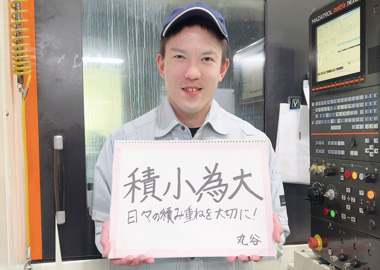 MAZATROL MATRIX NEXUS
積小為大
日々の積み重ねを大切に!
丸谷